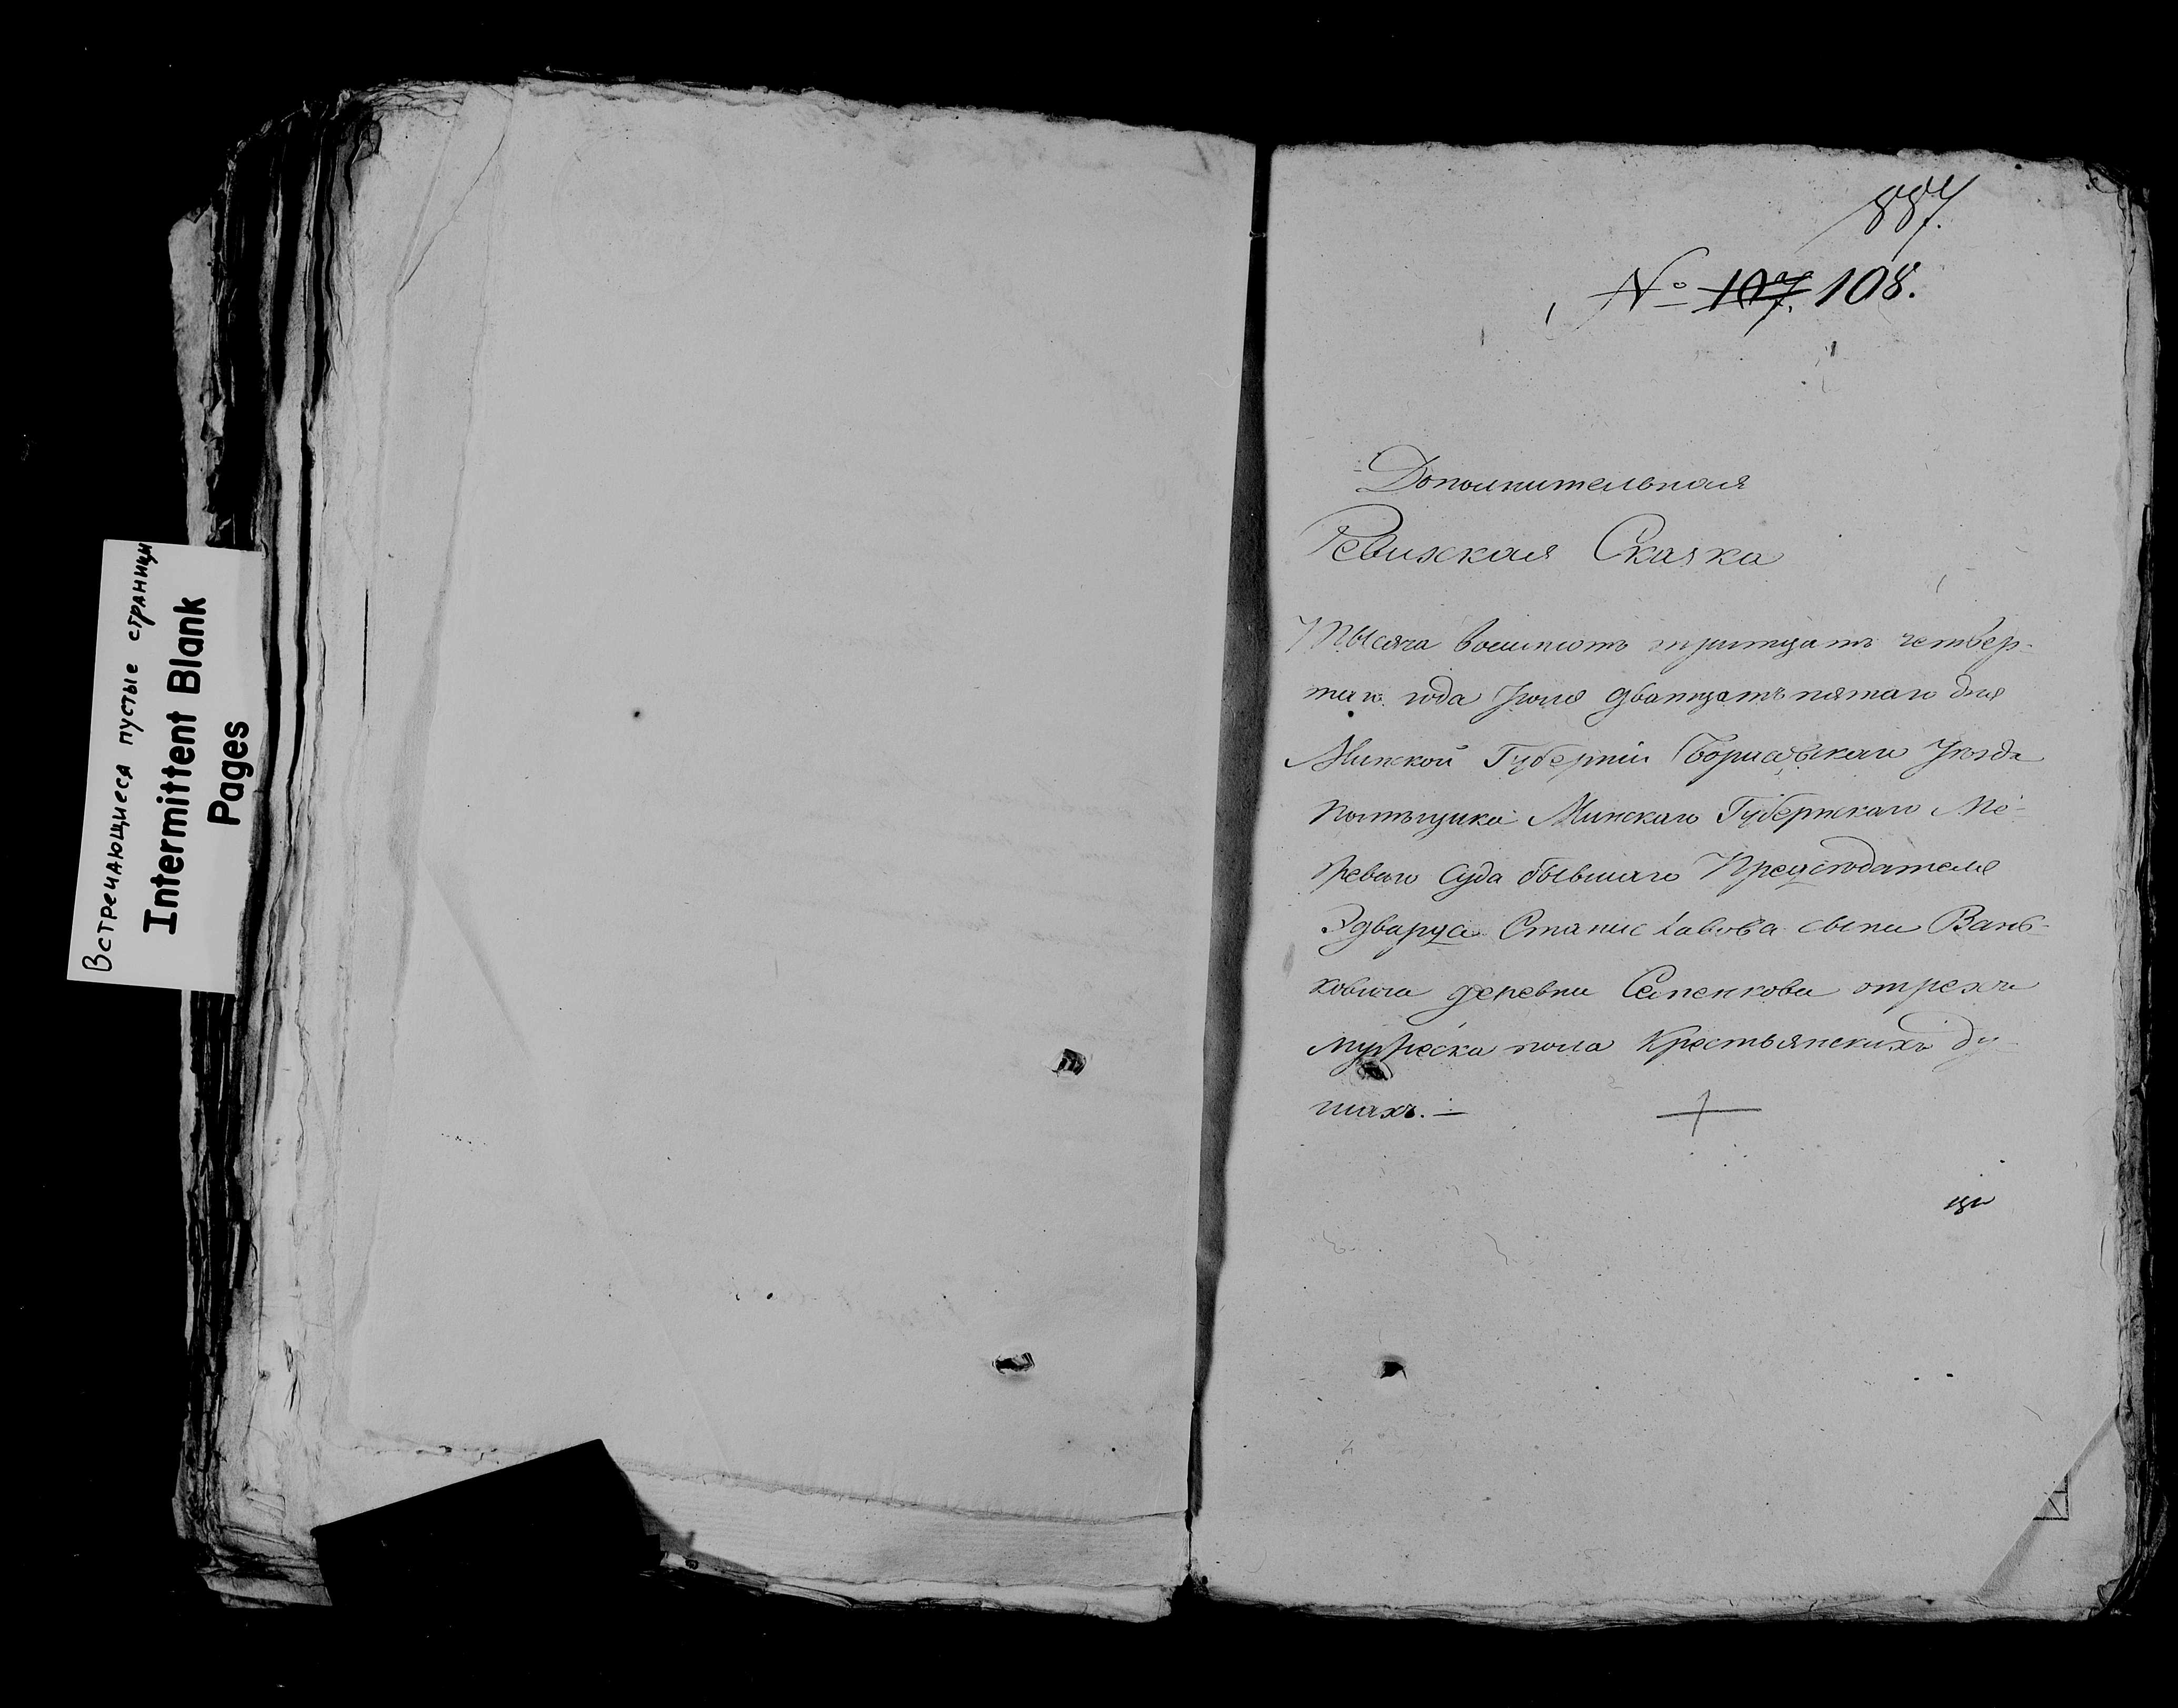 Встречающиеся пустые страницы
Intermittent Blank
Pages
887.
№ 107. 108.
Дополнительная
Ревизская Сказка
Тысяча восемсотъ тритцать четвер-
таго года Іюля дватцать пятаго дня
Минской Губерніи Борисовскаго Уезда
Помѣщика Минскаго Губернскаго Ме-
жеваго Суда бывшаго Предсѣдателя
Эдварда Станиславова сына Вань-
ковича деревни Сапенкова о
мужеска пола Крестьянскихъ ду-
шахъ. —